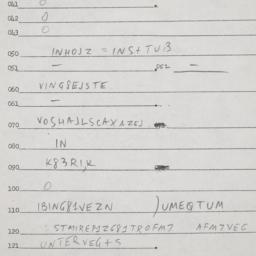 041 0
042 0
043 0
050 INHOLZ = INS+TUB
051 — 052 —
060 VING8EJSTE
061 —
070 VOSHAJLSCAX1ZEJ
080 IN
090 K83RIJK
100 0
110 IBING81VEZN )UMEQTUM
120 STMIREP1Z681TROFM7 AFM7VEG
121 UNTERVEG+S